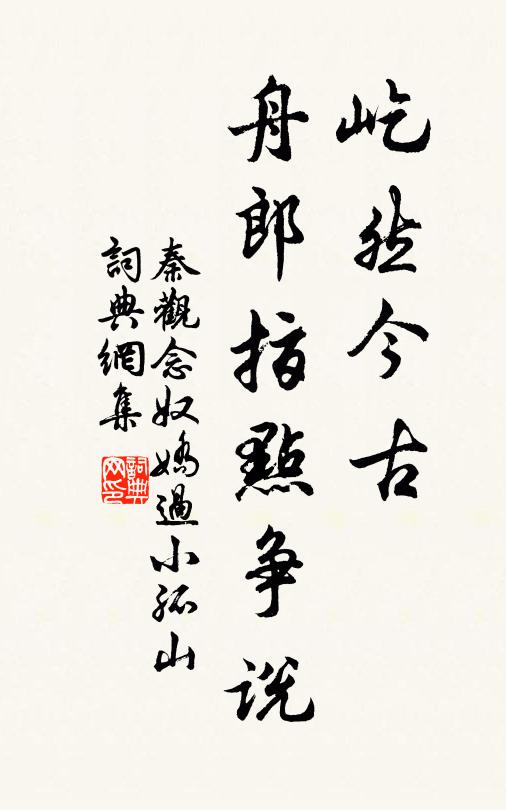 屹然今古
舟郎指點争説
秦觀念奴嬌過小孤山
詞典網集
詞典網印